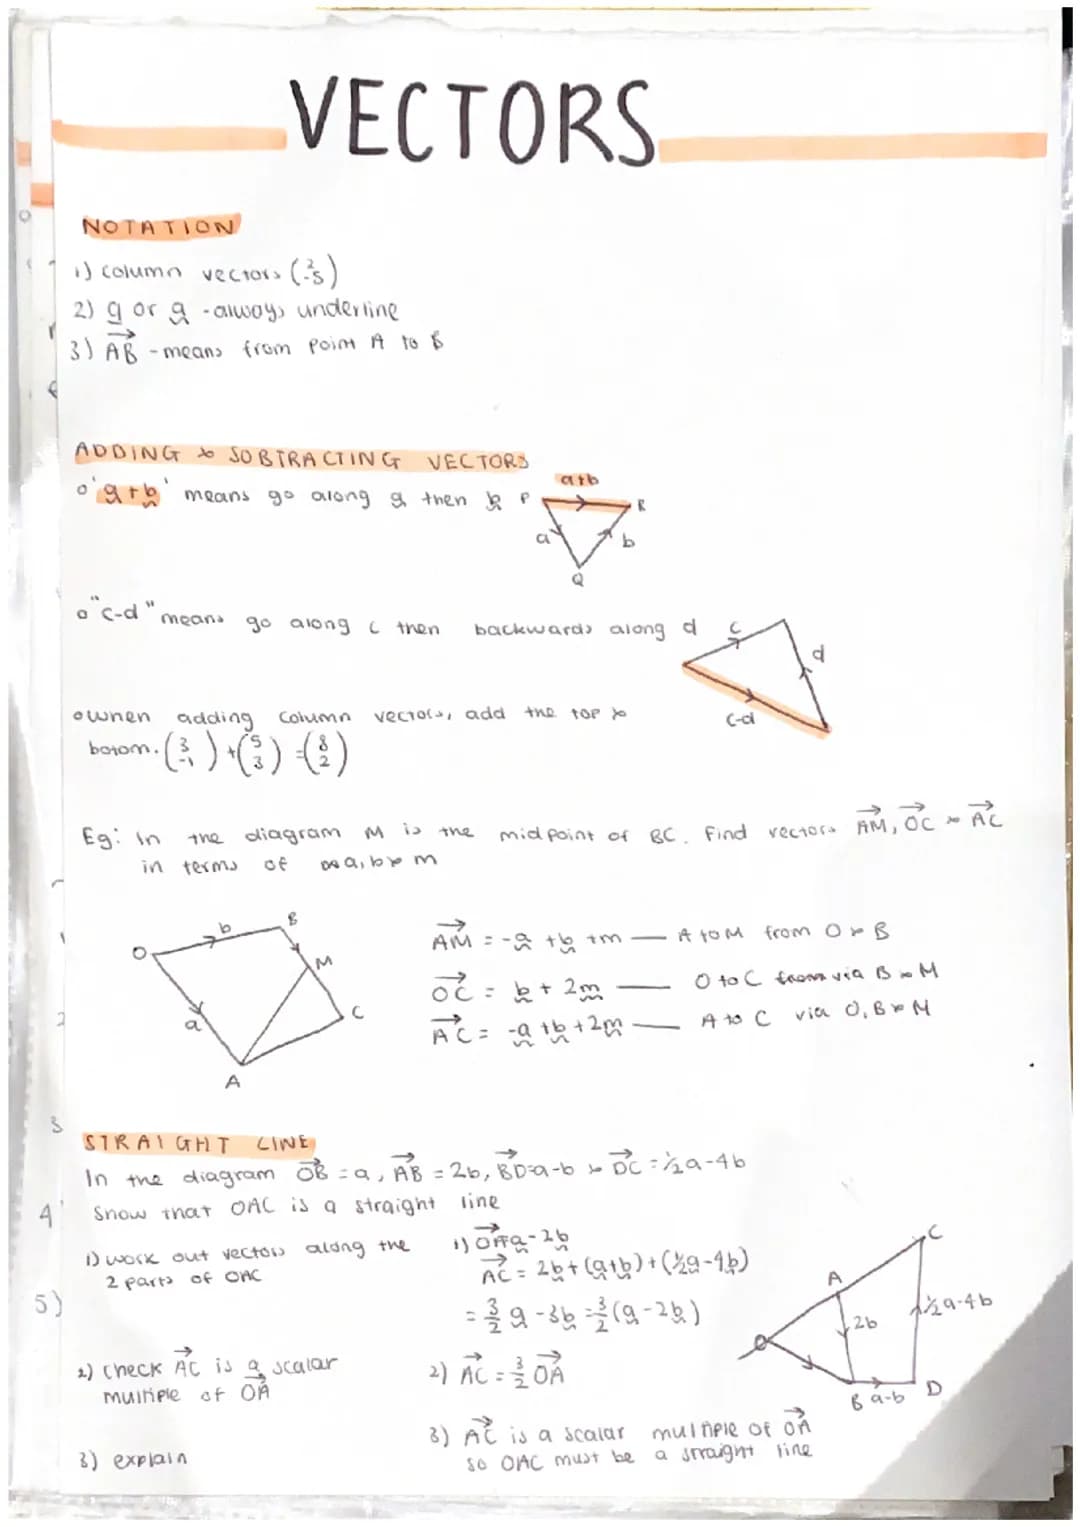 VECTORS
NOTATION
1) column vectors (2 -5)
2) a or a - always underline
3) AB - means from point A to B
ADDING & SOBTRACTING VECTORS
'a+b' means go along a then b
a+b
P
R
a
b
Q
"c-d" means go along c then backwards along d
c
d
c-d
when adding column vectors, add the top &
botom. (3 -1) + (5 3) = (8 2)
Eg: In the diagram M is the midpoint of BC. Find vectors AM, OC & AC
in terms of a, b & m
O
b
B
M
C
a
A
AM = -a + b + m — A to M from O & B
OC = b + 2m — O to C via B & M
AC = -a + b + 2m — A to C via O, B & M
STRAIGHT LINE
In the diagram OB = a, AB = 2b, BD = a-b & DC = ½a-4b
Show that OAC is a straight line
1) work out vectors along the
2 parts of OAC
1) OA=a-2b
AC = 2b + (a+b) + (½a-4b)
= 3/2 a - 3b = 3/2 (a-2b)
2) check AC is a scalar
multiple of OA
2) AC = 3/2 OA
3) explain
3) AC is a scalar multiple of OA
so OAC must be a straight line
C
A
½a-4b
2b
B a-b D
3
4
5)